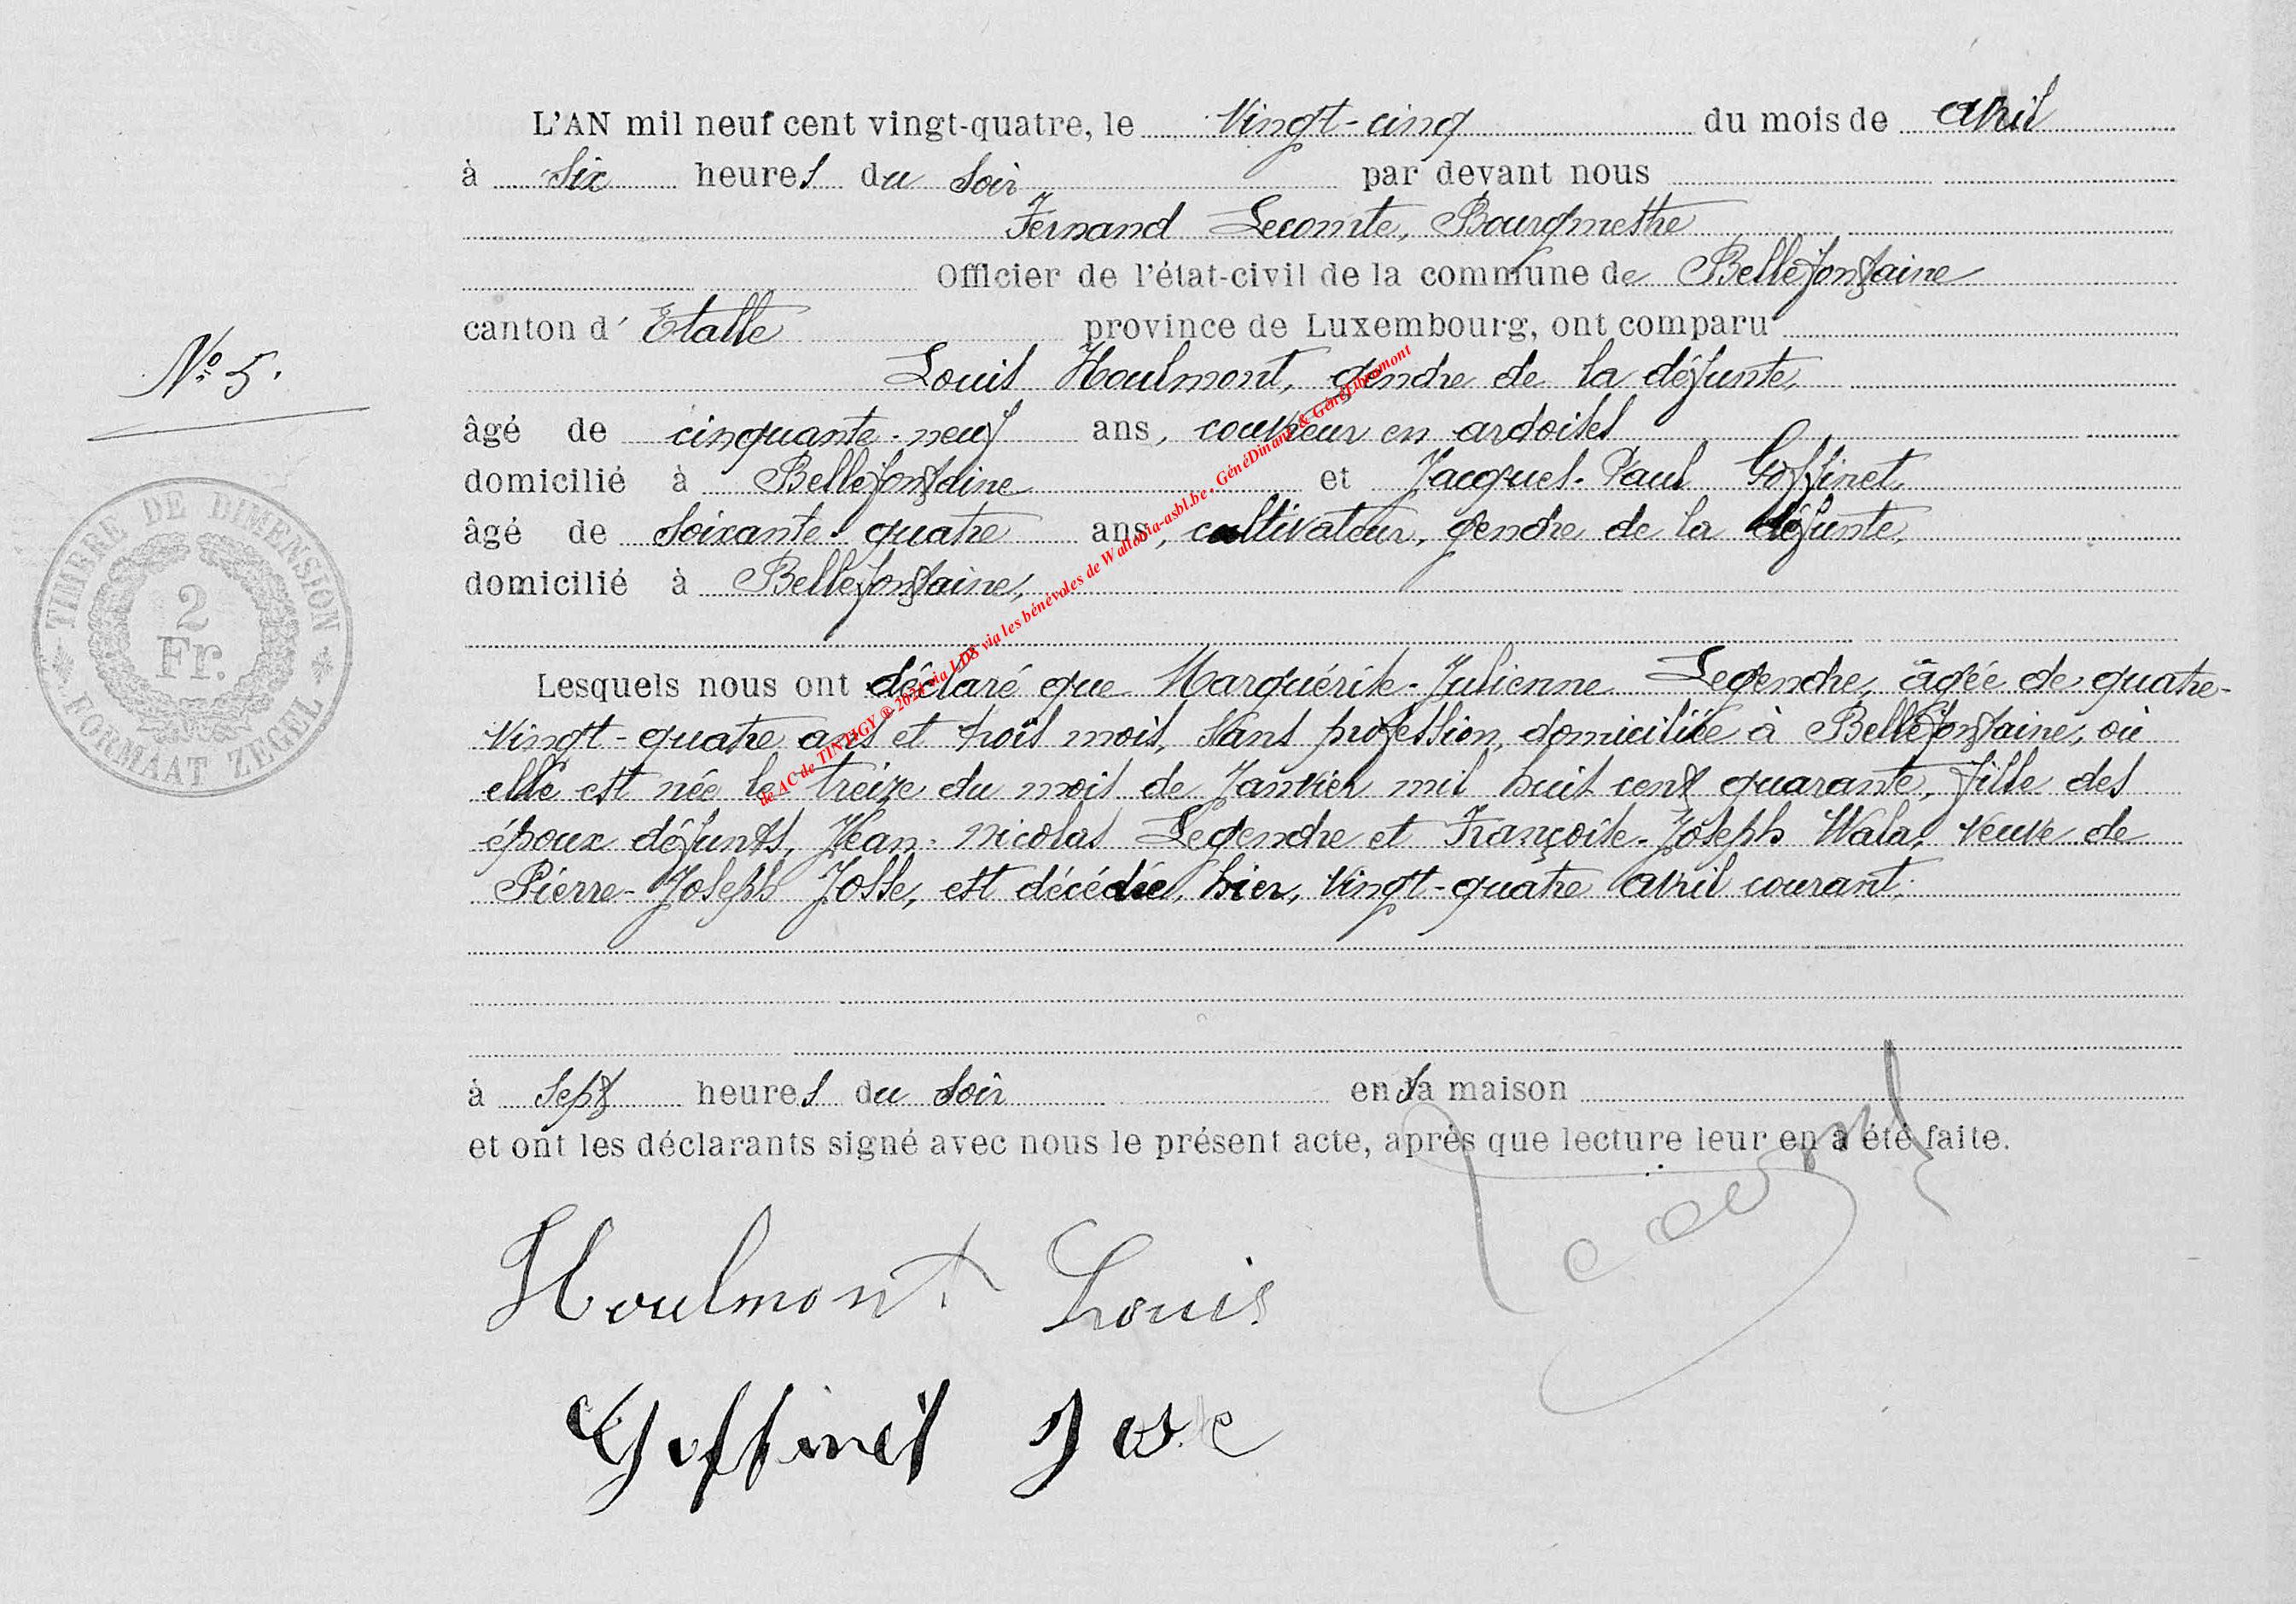 L'AN mil neuf cent vingt-quatre, le Vingt-cinq du mois de avril
à six heures du soir par devant nous
Fernand Lecomte, Bourgmestre
Officier de l'état-civil de la commune de Bellefontaine
canton d' Etalle province de Luxembourg, ont comparu
N° 5.
Louis Houlmont, gendre de la défunte,
âgé de cinquante-neuf ans, couvreur en ardoises
domicilié à Bellefontaine et Jacques-Paul Goffinet,
âgé de soixante-quatre ans, cultivateur, gendre de la défunte,
domicilié à Bellefontaine,
TIMBRE DE DIMENSION
2
Fr.
FORMAAT ZEGEL
Lesquels nous ont déclaré que Marguérite-Julienne Legendre, âgée de quatre-
vingt-quatre ans et trois mois, sans profession, domiciliée à Bellefontaine, où
elle est née le treize du mois de Janvier mil huit cent quarante, fille des
époux défunts, Jean-Nicolas Legendre et Françoise-Joseph Wala, veuve de
Pierre-Joseph Josse, est décédée, hier, vingt-quatre avril courant,
à sept heures du soir en sa maison
et ont les déclarants signé avec nous le présent acte, après que lecture leur en a été faite.
Houlmont Louis
Goffinet
de AC de TINTIGY ® 2024 via LDS via les bénévoles de Wallonia-asbl.be - GénéDinant & GénéLibramont